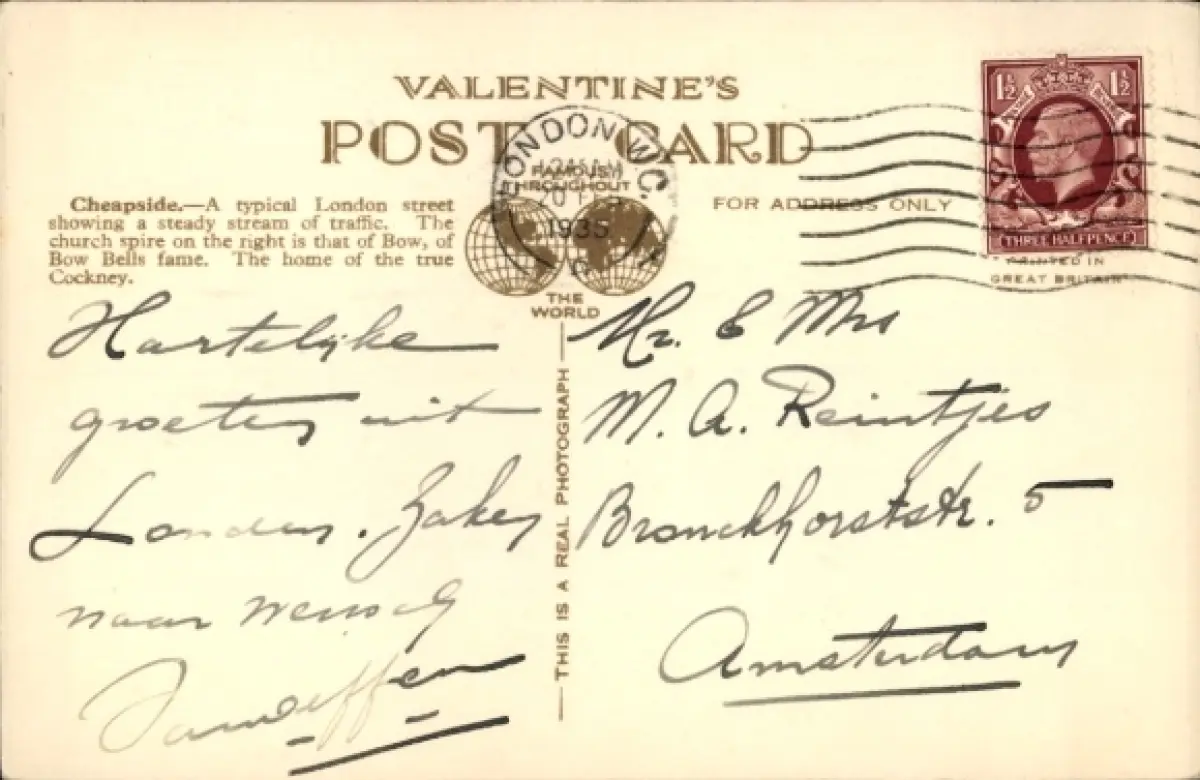 VALENTINE'S
POST CARD
FAMOUS
THROUGHOUT
THE
WORLD
LONDON W.C.
12 45 AM
1935
Cheapside.—A typical London street
showing a steady stream of traffic. The
church spire on the right is that of Bow, of
Bow Bells fame. The home of the true
Cockney.
FOR ADDRESS ONLY
1½ 1½
THREE HALFPENCE
PRINTED IN
GREAT BRITAIN
THIS IS A REAL PHOTOGRAPH
Hartelijke
groeten uit
Londen. Zaken
naar wensch
Mr. & Mrs
M. A. Reintjes
Bronckhorststr. 5
Amsterdam